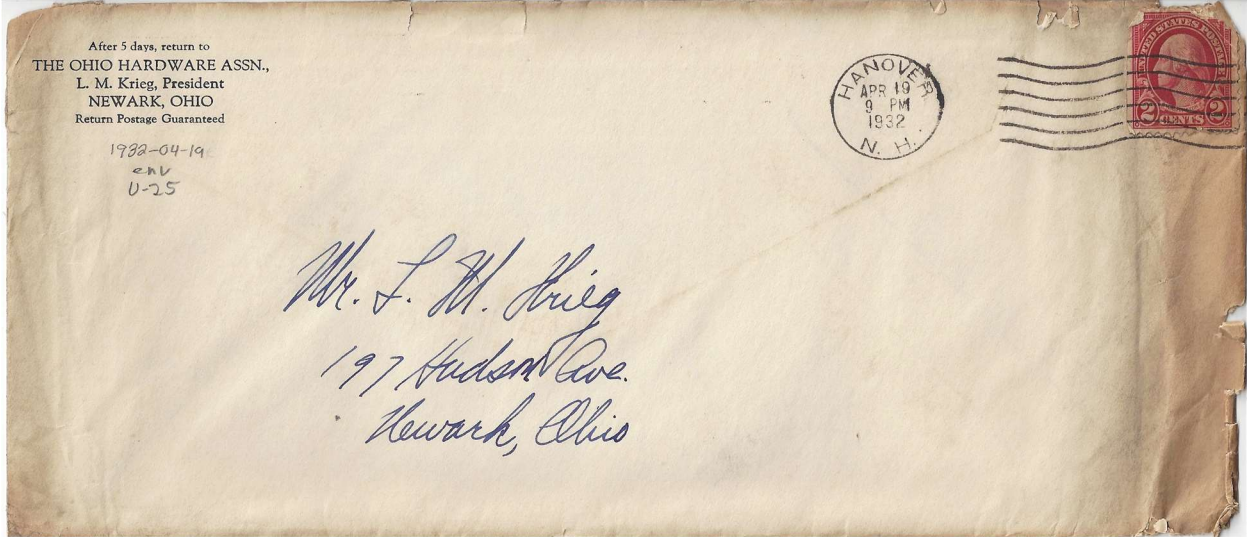 After 5 days, return to
THE OHIO HARDWARE ASSN.,
L. M. Krieg, President
NEWARK, OHIO
Return Postage Guaranteed
1932-04-19
env
U-25
HANOVER
APR 19
9 PM
1932
N. H.
UNITED STATES POSTAGE
2 CENTS 2
Mr. L. M. Krieg
197 Hudson Ave.
Newark, Ohio